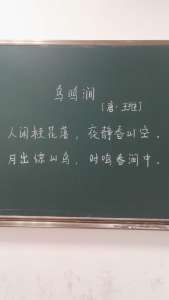 鸟鸣涧
[唐·王维]
人闲桂花落，夜静春山空。
月出惊山鸟，时鸣春涧中。